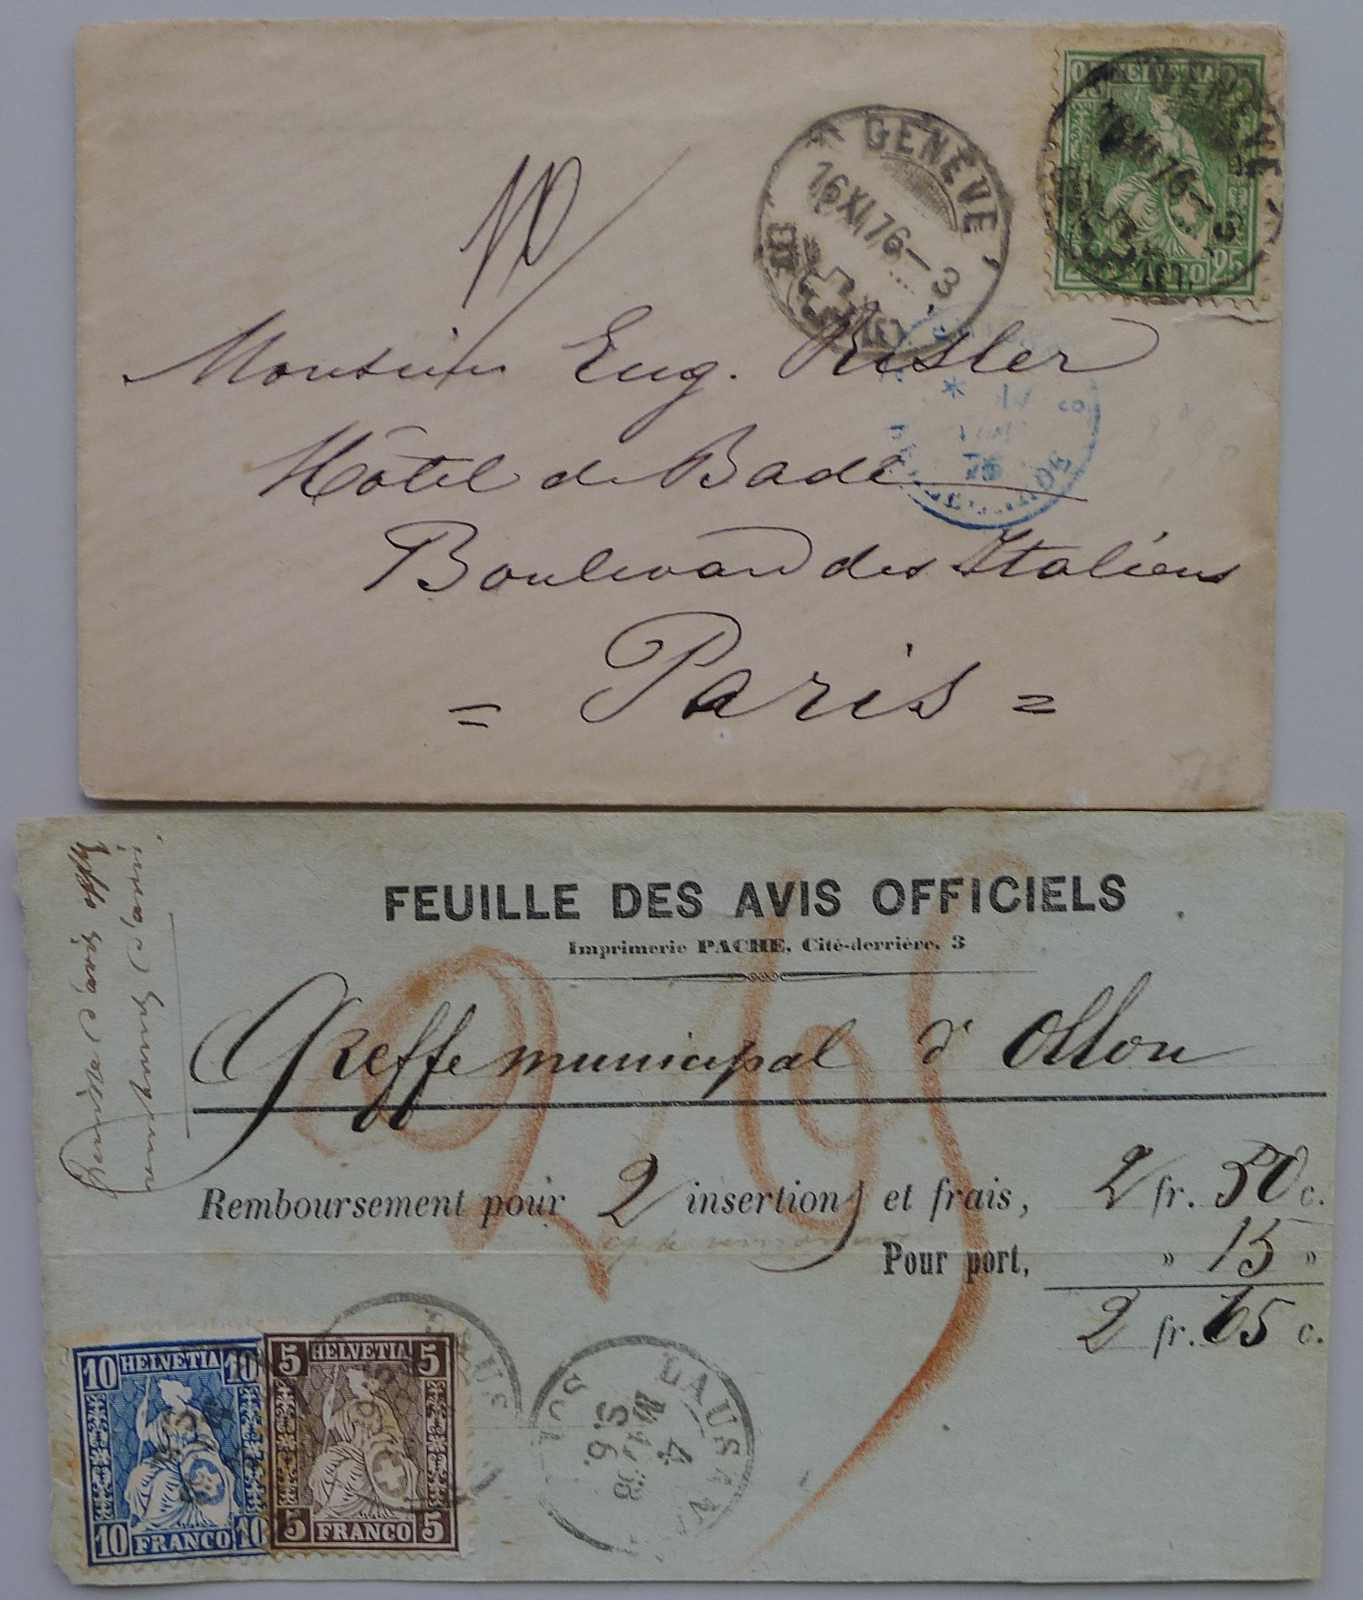 25 HELVETIA 25
GENÈVE
16 XI 76 – 3
10
Monsieur Eug. Risler
Hôtel de Bade
Boulevard des Italiens
= Paris =
FEUILLE DES AVIS OFFICIELS
Imprimerie PACHE, Cité-derrière, 3
Greffe municipal d'Ollon
Remboursement pour 2 insertions et frais, 2 fr. 50 c.
Pour port, » 15 »
2 fr. 65 c.
265
10 HELVETIA 10
10 FRANCO 10
5 HELVETIA 5
5 FRANCO 5
LAUS
LAUSAN
4
S.6.